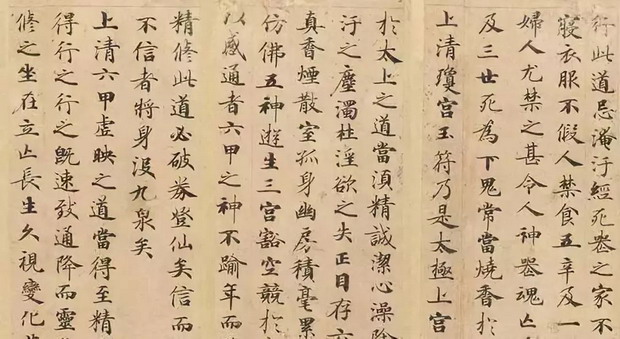 行此道忌淹汙經死喪之家不
寢衣服不假人禁食五辛及一
婦人尤禁之甚令人神喪魂亡
及三世死為下鬼常當燒香於
上清瓊宮玉符乃是太極上宮
於太上之道當湏精誠潔心澡除
汙之塵濁杜淫欲之失正目存六
真香煙散室孤身幽房積毫累
仿佛五神遊生三宮豁空競於
以感通者六甲之神不踰年而
精修此道必破券登仙矣信而
不信者將身沒九泉矣
上清六甲虛映之道當得至精
得行之行之既速致通降而靈
修之坐在立亡長生久視變化